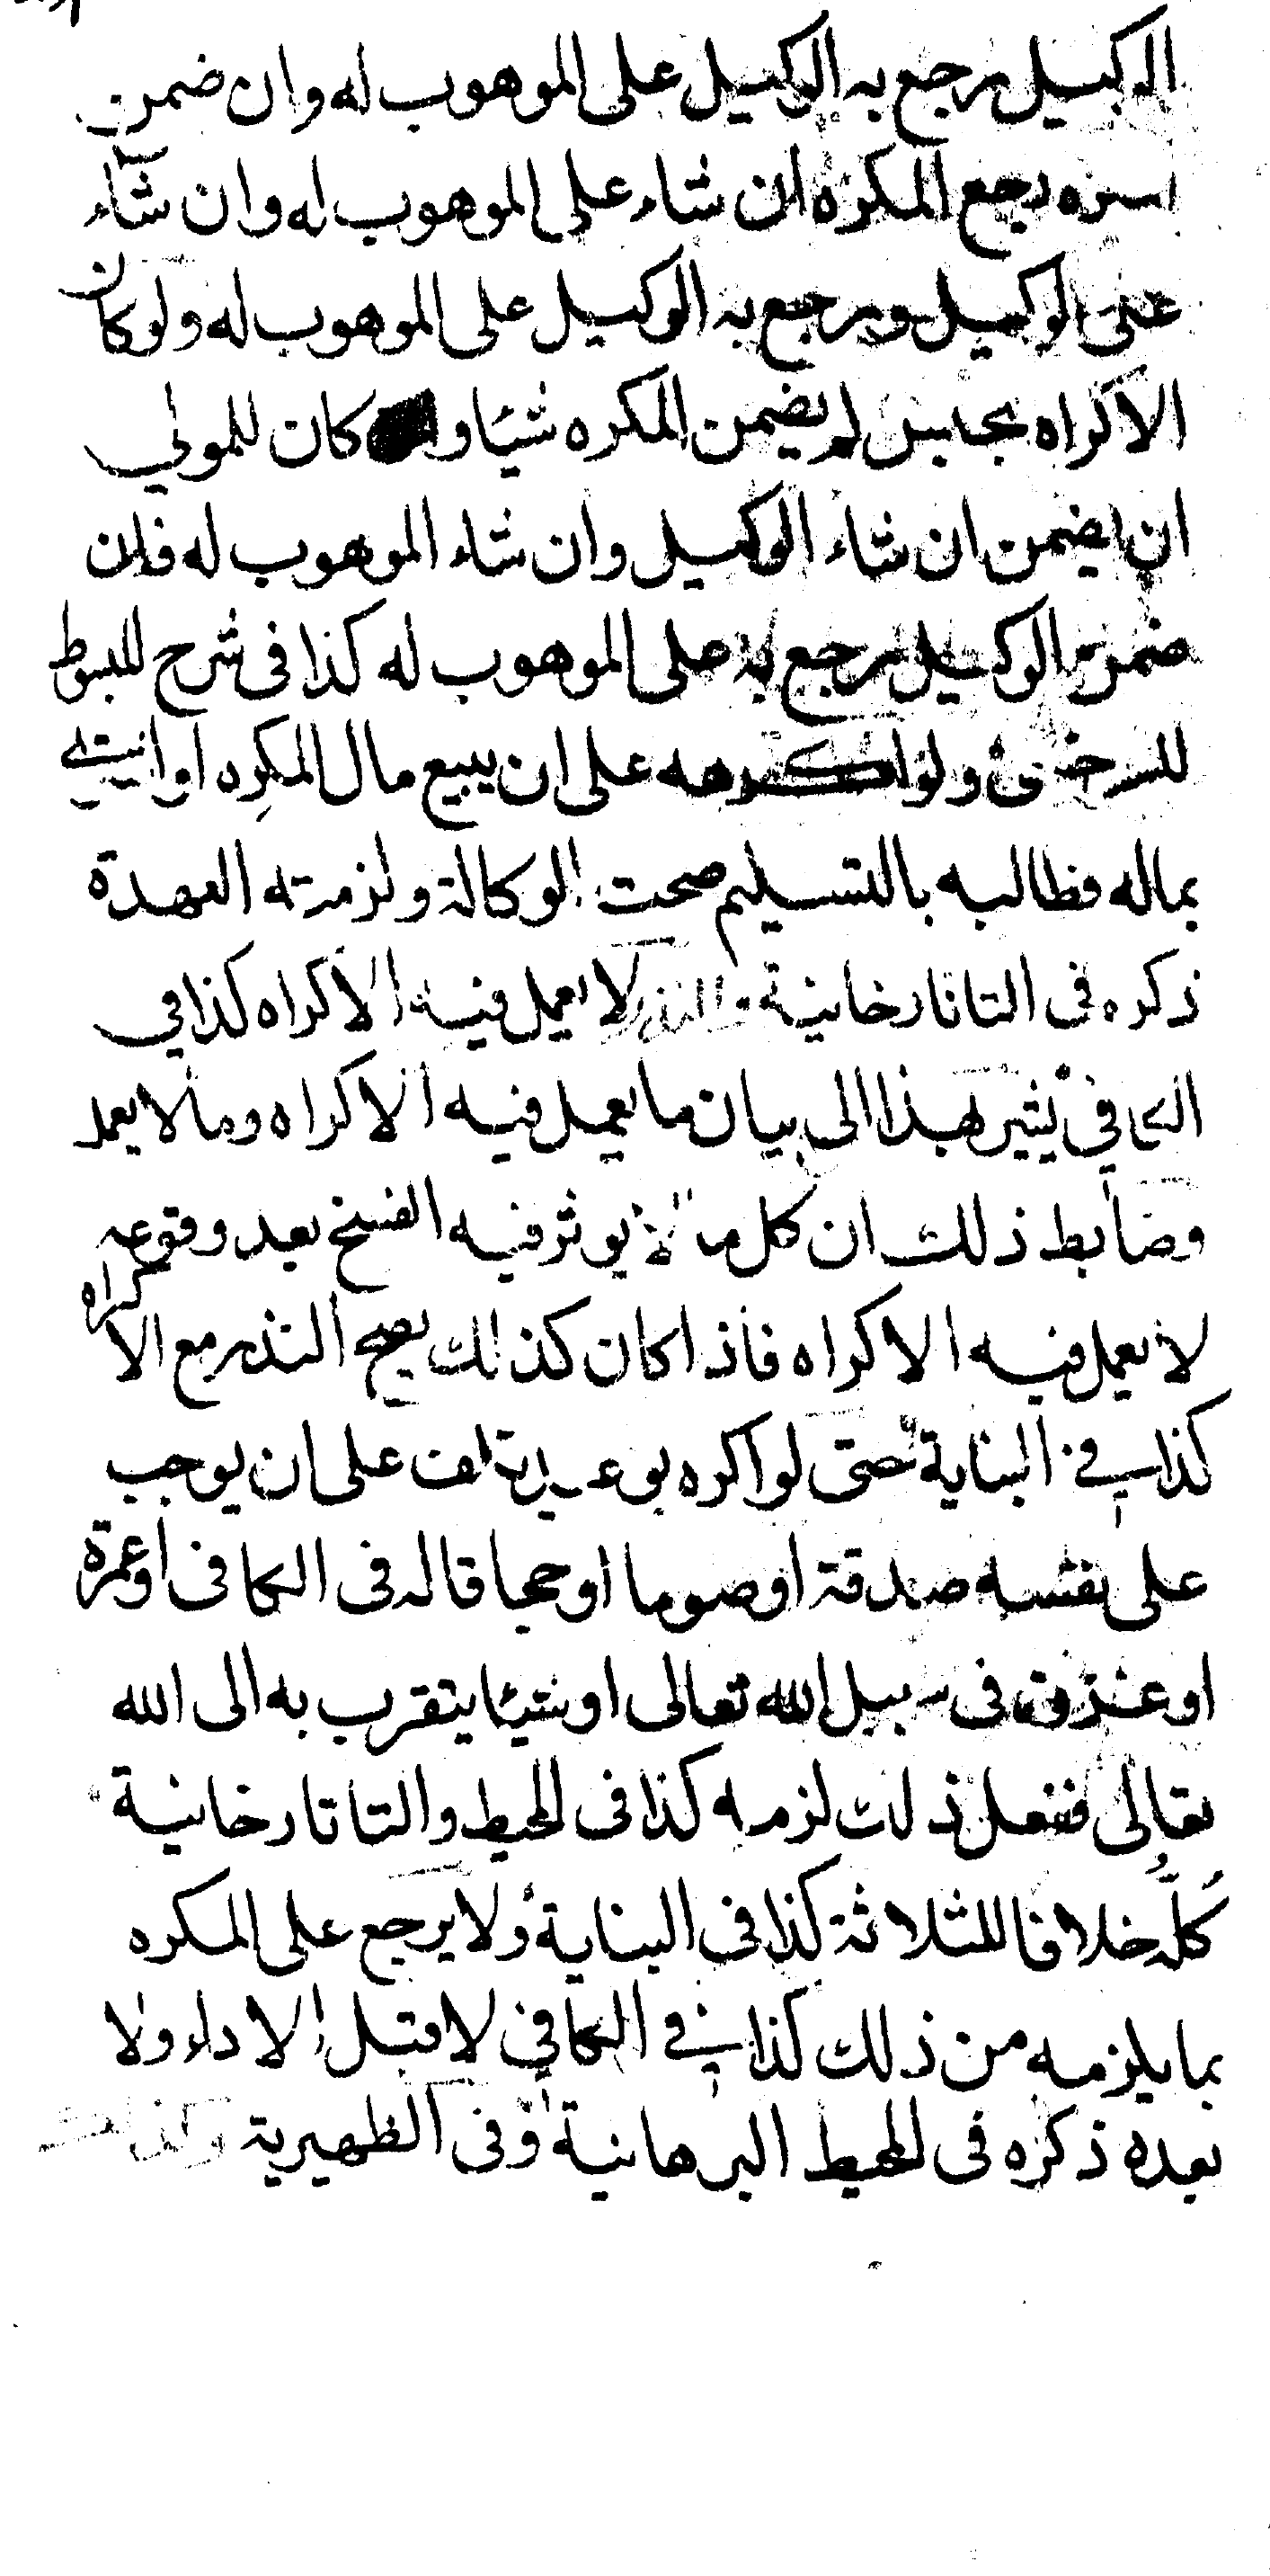 الوكيل رجع به الوكيل على الموهوب له وان ضمن
رجع المكره ان شاء على الموهوب له وان شاء
على الوكيل ويرجع به الوكيل على الموهوب له ولو كان
الاكراه بحبس لم يضمن المكره شيئا و كان للمولى
ان يضمن ان شاء الوكيل وان شاء الموهوب له فان
ضمن الوكيل رجع به على الموهوب له كذا فى شرح المبسوط
للسرخسى ولو اكرهه على ان يبيع مال المكره او
بماله فطالبه بالتسليم صحت الوكالة ولزمته العهدة
ذكره فى التاتارخانية والنذر لا يعمل فيه الاكراه كذا في
الكافي يشير بهذا الى بيان ما يعمل فيه الاكراه وما لا يعمل
وضابط ذلك ان كل ما لا يوثر فيه الفسخ بعد وقوعه
لا يعمل فيه الاكراه فاذا كان كذلك يصح النذر مع الاكراه
كذا في البناية حتى لو اكره بوعيد تلف على ان يوجب
على نفسه صدقة او صوما او حجا قاله فى الكافى او عمرة
او غزوة فى سبيل الله تعالى او شيئا يتقرب به الى الله
تعالى ففعل ذلك لزمه كذا فى المحيط والتاتارخانية
كله خلافا للثلاثة كذا فى البناية ولا يرجع على المكره
بما يلزمه من ذلك كذا في الكافي لا قبل الاداء ولا
بعده ذكره فى المحيط البرهانية وفى الظهيرية وكذا